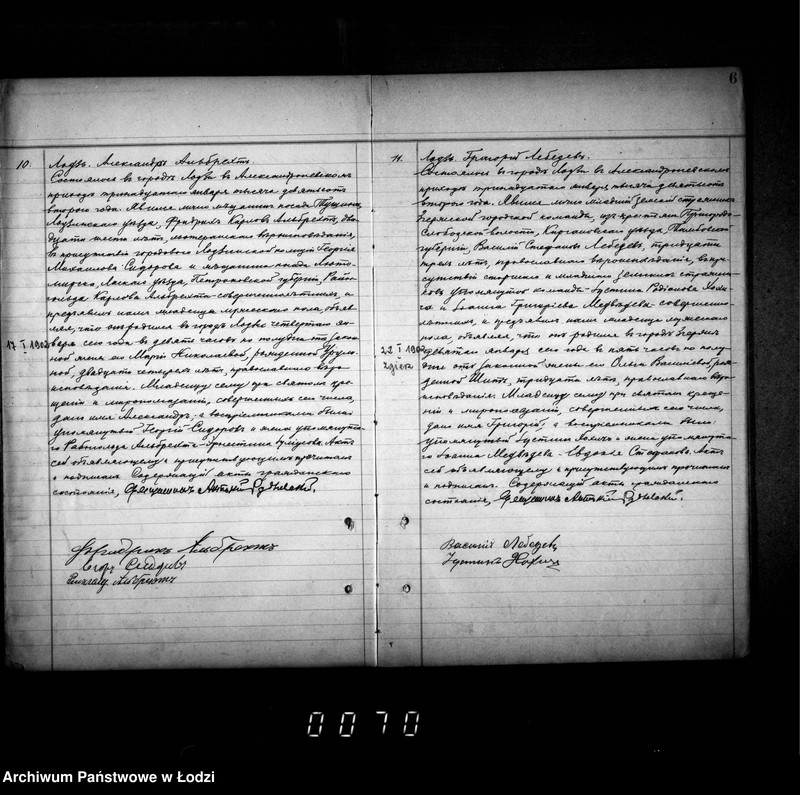 6
10.
Лодзь. Александръ Альбрехтъ.
Состоялось въ городѣ Лодзи въ Александроневскомъ
приходѣ тринадцатаго января тысяча девятьсотъ
второго года. Явился мѣщанинъ посада Тушина,
Лодзинскаго уѣзда, Фридрихъ Карловъ Альбрехтъ, два-
дцати шести лѣтъ, лютеранскаго вѣроисповѣданія,
въ присутствіи городового Лодзинской полиціи Георгія
Сидорова и мѣщанина посада Люто-
мирска, Ласкаго уѣзда, Петроковской губерніи,
Карлова Альбрехта совершеннолѣтнихъ, и
предъявилъ намъ младенца мужескаго пола, объяв-
ляя, что онъ родился въ городѣ Лодзи четвертаго ян-
17 I 1902
варя сего года въ девять часовъ по полудни отъ закон-
ной жены его Маріи Николаевой, рожденной
двадцати лѣтъ, православнаго вѣро-
исповѣданія. Младенцу сему при святомъ кре-
щеніи и миропомазаніи, совершенномъ сего числа,
дано имя Александръ, а воспріемниками были
упомянутый Георгій Сидоровъ и жена упомянута-
го Альбрехта Актъ
сей объявляющему и присутствующимъ прочитанъ
и подписанъ. Содержащій акты гражданскаго
состоянія,
Фридрихъ Альбрехтъ
Сидоровъ
Альбрехтъ
11.
Лодзь. Григорій Лебедевъ.
Состоялось въ городѣ Лодзи въ Александроневскомъ
приходѣ тринадцатаго января тысяча девятьсотъ
второго года. Явился младшій земскій стражникъ
Згержской городской команды, изъ крестьянъ
Слободской волости, Кирсановскаго уѣзда, Тамбовской
губерніи, Василій Степановъ Лебедевъ, тридцати
трехъ лѣтъ, православнаго вѣроисповѣданія, въ при-
сутствіи старшаго и младшаго земскихъ стражни-
ковъ упомянутой команды Іустина
и Іоанна Григоріева Медвѣдева совершенно-
лѣтнихъ, и предъявилъ намъ младенца мужескаго
пола, объявляя, что онъ родился въ городѣ Згержѣ
22 I 1902
Zgierz
девятаго января сего года въ пять часовъ по полу-
дни отъ законной жены его Ольги Васильевой, рож-
денной тридцати лѣтъ, православнаго вѣро-
исповѣданія. Младенцу сему при святомъ креще-
ніи и миропомазаніи, совершенномъ сего числа,
дано имя Григорій, а воспріемниками были
упомянутый Іустинъ и жена упомянута-
го Іоанна Медвѣдева Евдокія Степанова. Актъ
сей объявляющему и присутствующимъ прочитанъ
и подписанъ. Содержащій акты гражданскаго
состоянія,
Василій Лебедевъ
Іустинъ
0070
Archiwum Państwowe w Łodzi